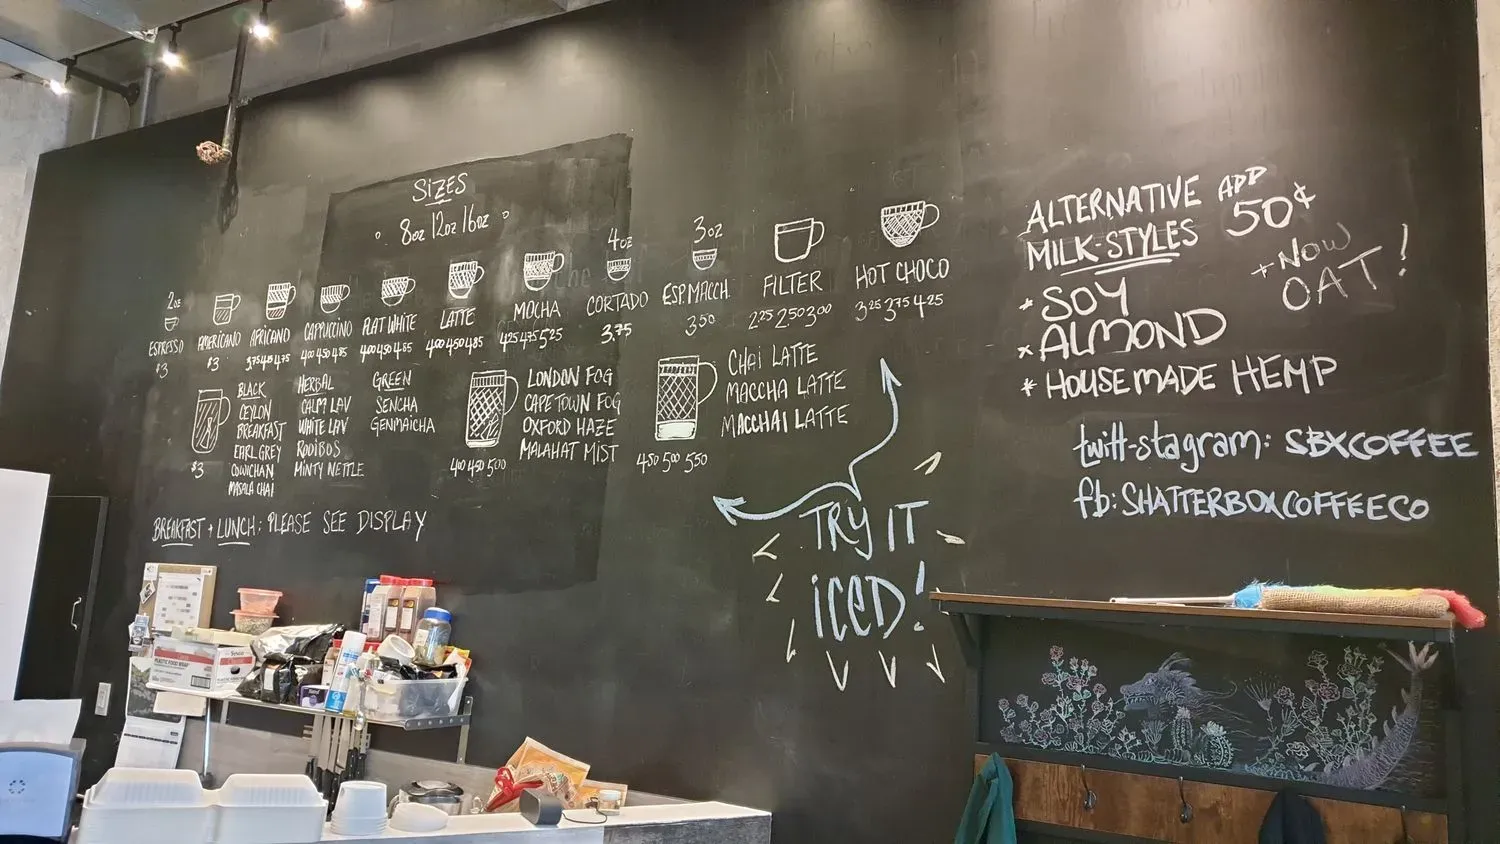 SIZES
8oz 12oz 16oz
2oz
ESPRESSO
$3
AMERICANO
$3
AFRICANO
3.75 4.25 4.75
CAPPUCCINO
4.00 4.50 4.85
FLAT WHITE
4.00 4.50 4.85
LATTE
4.00 4.50 4.85
MOCHA
4.25 4.75 5.25
4oz
CORTADO
3.75
3oz
ESP. MACCH.
3.50
FILTER
2.25 2.50 3.00
HOT CHOCO
3.25 3.75 4.25
$3
BLACK
CEYLON
BREAKFAST
EARL GREY
COWICHAN
MASALA CHAI
HERBAL
CALM LAV
WHITE LAV
ROOIBOS
MINTY NETTLE
GREEN
SENCHA
GENMAICHA
4.00 4.50 5.00
LONDON FOG
CAPE TOWN FOG
OXFORD HAZE
MALAHAT MIST
4.50 5.00 5.50
CHAI LATTE
MACCHA LATTE
MACCHAI LATTE
BREAKFAST + LUNCH: PLEASE SEE DISPLAY
TRY IT
ICED!
ALTERNATIVE ADD
MILK-STYLES 50¢
+ NOW
OAT!
* SOY
* ALMOND
* HOUSEMADE HEMP
twitt-stagram: SBXCOFFEE
fb: SHATTERBOXCOFFEECO